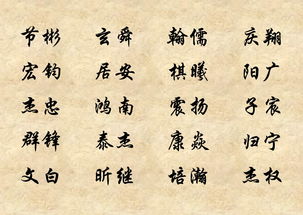 节彬 玄舜 翰儒 庆翔
宏钧 居安 棋曦 阳广
杰忠 鸿南 震扬 子宸
群锋 泰杰 康焱 归宁
文白 昕继 培瀚 杰权